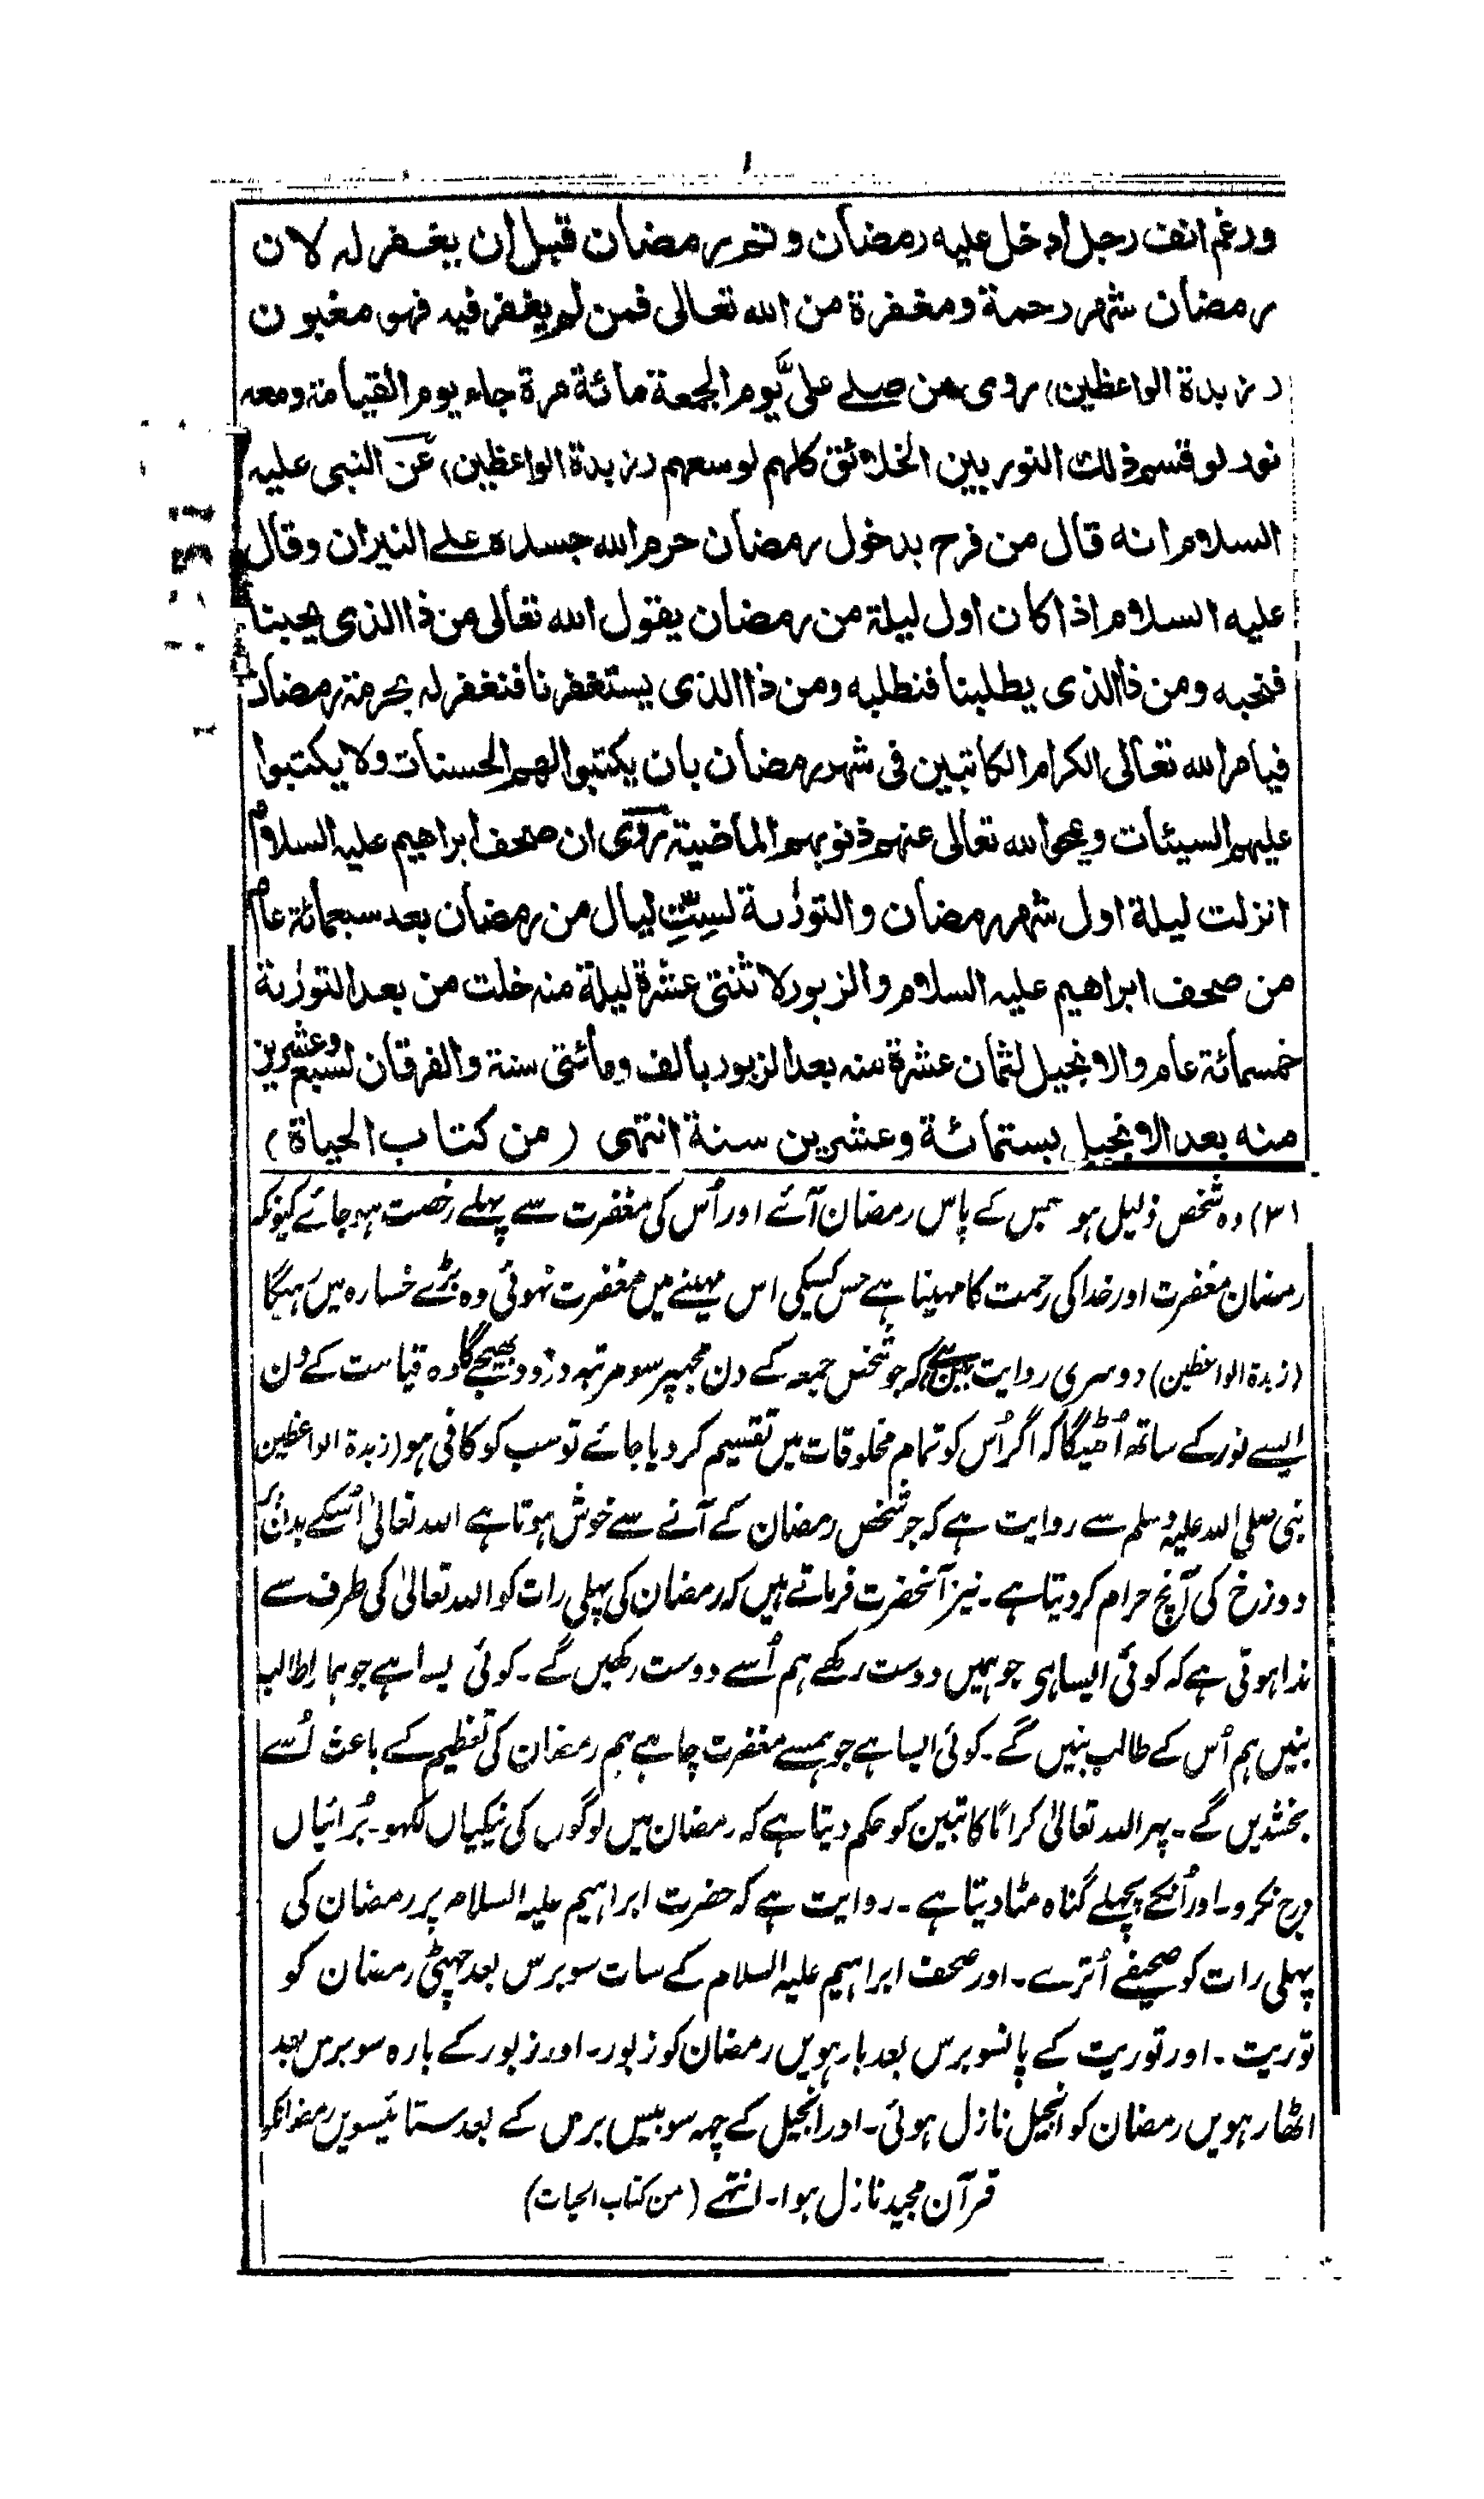 ورغم انف رجل ادخل عليه رمضان وتم رمضان قبل ان يغفر له لان
رمضان شهر رحمة ومغفرة من الله تعالى فمن لم يغفر فيه فهو مغبون
(زبدة الواعظين) روى من صلے علىَّ يوم الجمعة مائة مرة جاء يوم القيامة ومعه
نور لو قسم ذلك النور بين الخلائق كلهم لوسعهم (زبدة الواعظين) عن النبى عليه
السلام انه قال من فرح بدخول رمضان حرم الله جسده علے النيران وقال
عليه السلام اذا كان اول ليلة من رمضان يقول الله تعالى من ذا الذى يحبنا
فنحبه ومن ذا الذى يطلبنا فنطلبه ومن ذا الذى يستغفرنا فنغفر له بحرمة رمضان
فيامر الله تعالى الكرام الكاتبين فى شهر رمضان بان يكتبوا لهم الحسنات ولا يكتبوا
عليهم السيئات ويمحوا الله تعالى عنهم ذنوبهم الماضية روى ان صحف ابراهيم عليه السلام
انزلت ليلة اول شهر رمضان والتورٰىة لسِتِّ ليال من رمضان بعد سبعمائة عام
من صحف ابراهيم عليه السلام والزبور لاثنتى عشرة ليلة منه خلت من بعد التورٰىة
خمسمائة عام والانجيل لثمان عشرة منه بعد الزبور بالف ومائتى سنة والفرقان لسبع وعشرين
منه بعد الانجيل بستمائة وعشرين سنة انتهى (من كتاب الحياة)
(۳) وہ شخص ذلیل ہو جس کے پاس رمضان آئے اور اُس کی مغفرت سے پہلے رخصت ہو جائے کیونکہ
رمضان مغفرت اور خدا کی رحمت کا مہینا ہے جس کسیکی اس مہینے میں مغفرت نہوئی وہ بڑے خسارہ میں رہیگا
(زبدۃ الواعظین) دوسری روایت میں ہے کہ جو شخص جمعہ کے دن مجھپر سو مرتبہ درود بھیجے گا وہ قیامت کے دن
ایسے نور کے ساتھ اُٹھیگا کہ اگر اُس کو تمام مخلوقات میں تقسیم کر دیا جائے تو سب کو کافی ہو (زبدۃ الواعظین
نبی صلی اللہ علیہ وسلم سے روایت ہے کہ جو شخص رمضان کے آنے سے خوش ہوتا ہے اللہ تعالیٰ اُسکے بدن پر
دوزخ کی آنچ حرام کر دیتا ہے۔ نیز آنحضرت فرماتے ہیں کہ رمضان کی پہلی رات کو اللہ تعالیٰ کی طرف سے
ندا ہوتی ہے کہ کوئی ایسا ہی جو ہمیں دوست رکھے ہم اُسے دوست رکھیں گے۔ کوئی ایسا ہے جو ہمارا طالب
بنیں ہم اُس کے طالب بنیں گے۔ کوئی ایسا ہے جو ہمسے مغفرت چاہے ہم رمضان کی تعظیم کے باعث اُسے
بخشدیں گے۔ پھر اللہ تعالیٰ کراماً کاتبین کو حکم دیتا ہے کہ رمضان میں لوگوں کی نیکیاں لکھو۔ بُرائیاں
درج نکرو۔ اور اُنکے پچھلے گناہ مٹا دیتا ہے۔ روایت ہے کہ حضرت ابراہیم علیہ السلام پر رمضان کی
پہلی رات کو صحیفے اُترے۔ اور صحف ابراہیم علیہ السلام کے سات سو برس بعد چھٹی رمضان کو
توریت۔ اور توریت کے پانسو برس بعد بارہویں رمضان کو زبور۔ اور زبور کے بارہ سو برس بعد
اٹھارہویں رمضان کو انجیل نازل ہوئی۔ اور انجیل کے چھہ سو بیس برس کے بعد ستائیسویں رمضانکو
قرآن مجید نازل ہوا۔ انتہے (من کتاب الحیات)